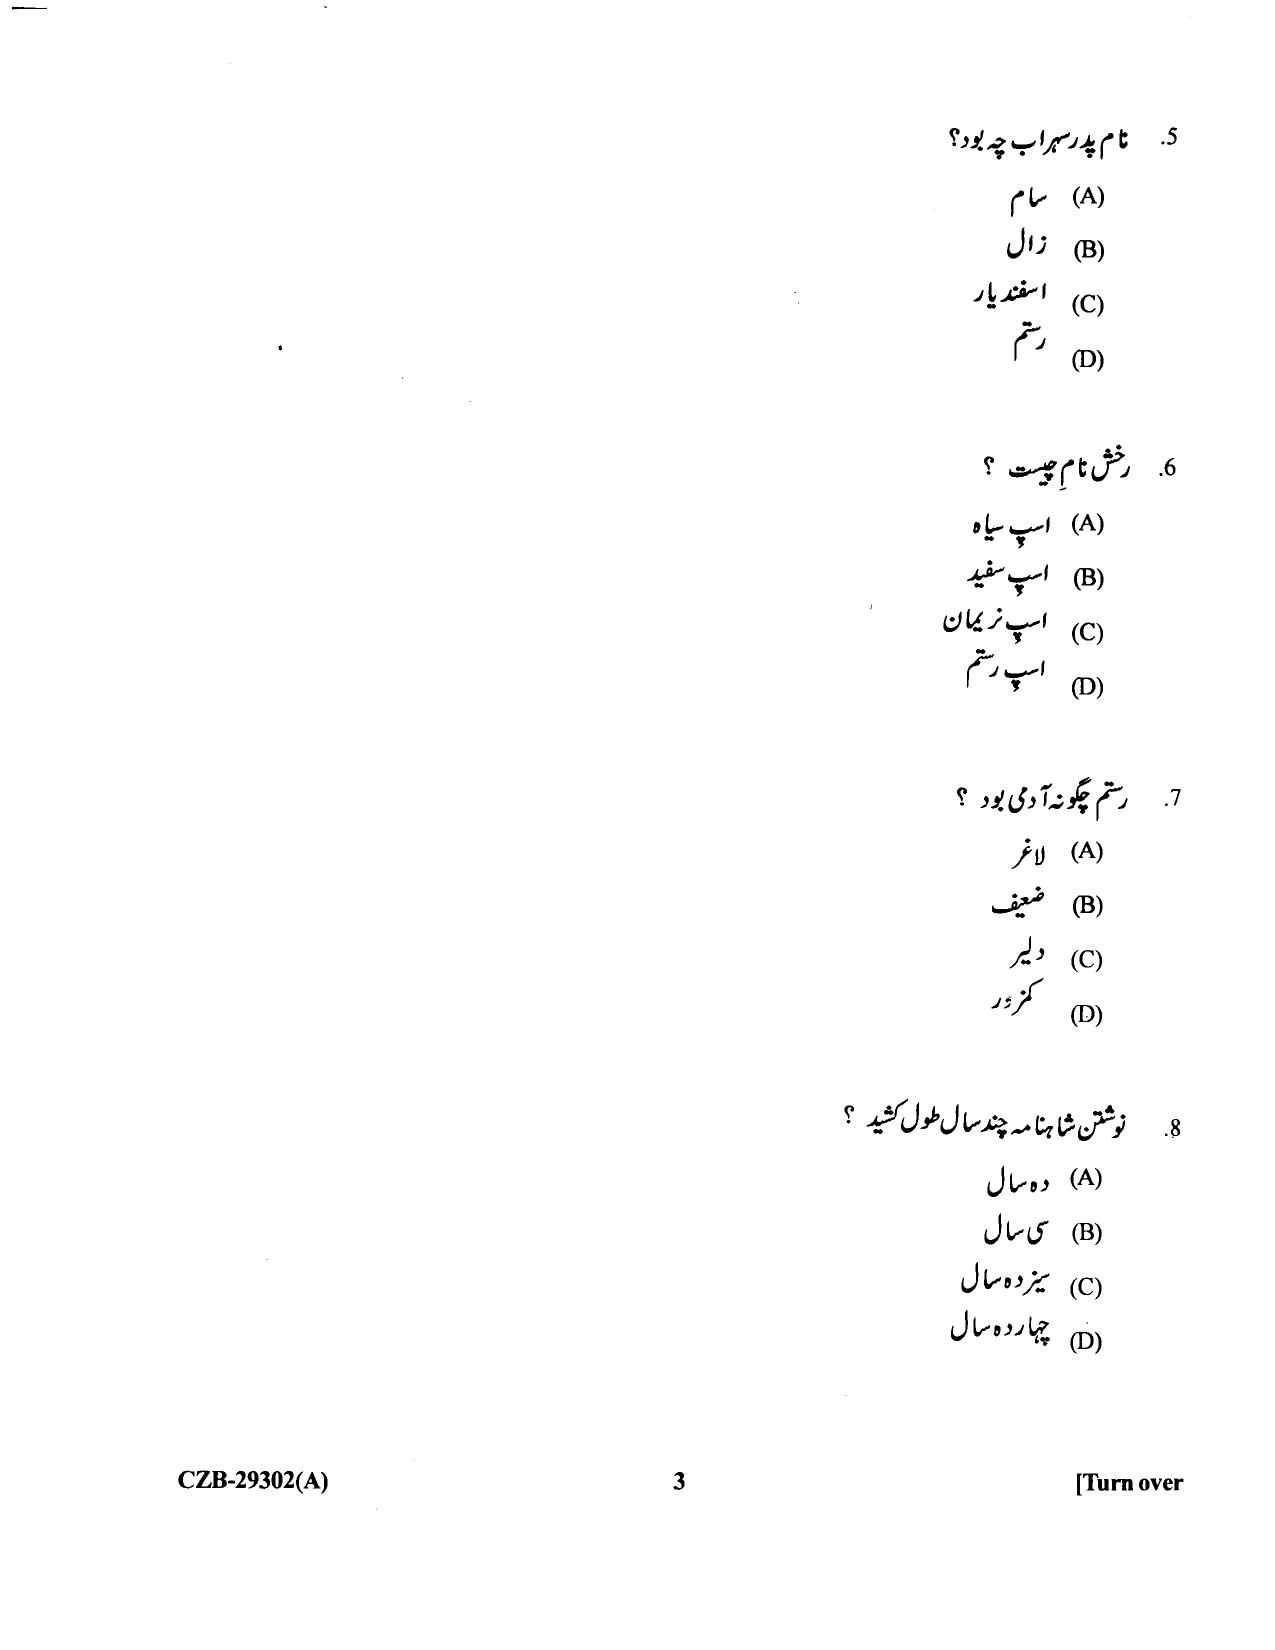 5. نام پدر سہراب چہ بود؟
(A) سام
(B) زال
(C) اسفندیار
(D) رستم
6. رخش نامِ چیست ؟
(A) اسپ سیاہ
(B) اسپ سفید
(C) اسپ نریمان
(D) اسپ رستم
7. رستم چگونہ آدمی بود ؟
(A) لاغر
(B) ضعیف
(C) دلیر
(D) کمزور
8. نوشتن شاہنامہ چند سال طول کشید ؟
(A) دہ سال
(B) سی سال
(C) سیزدہ سال
(D) چہاردہ سال
CZB-29302(A) 3 [Turn over